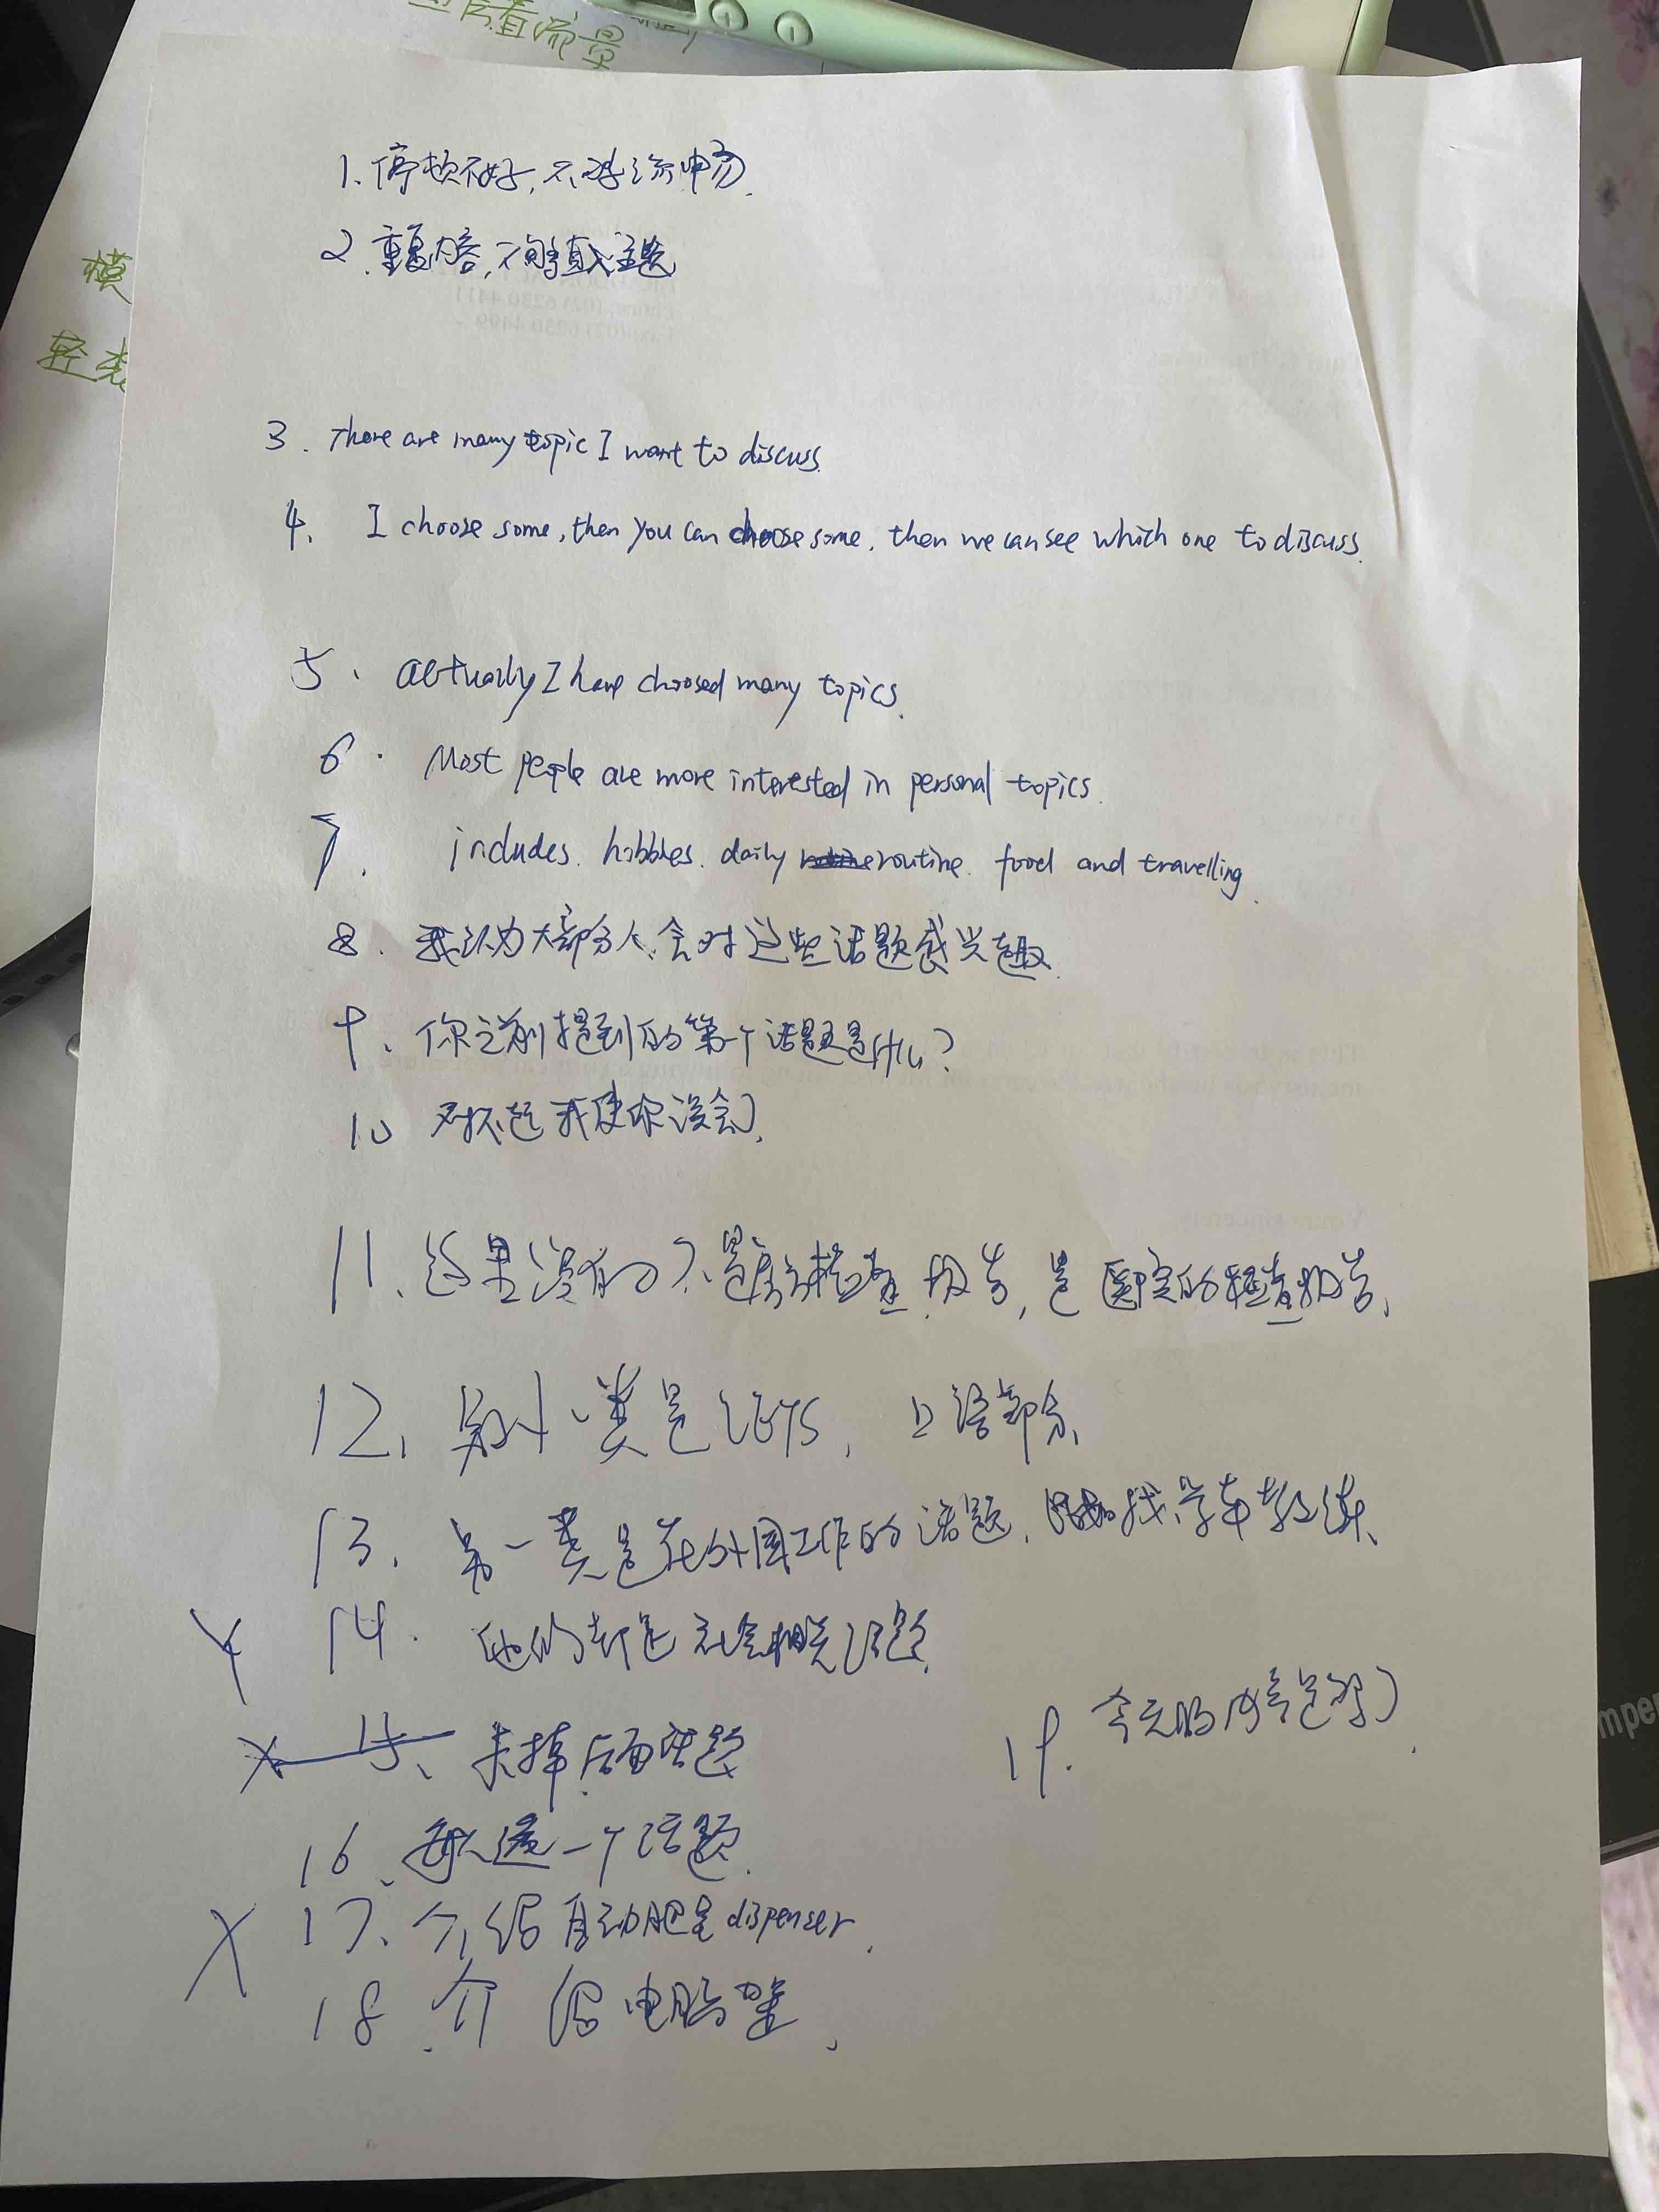 查看流量
模
轻
1. 停顿不好,不够流畅.
2. 重复内容,不够直入主题
3. There are many topic I want to discuss.
4. I choose some, then you can choose some, then we can see which one to discuss.
5、 actually I have choosed many topics.
6. Most people are more interested in personal topics.
7. includes. hobbies. daily routine. food and travelling.
8. 我认为大部分人会对这些话题感兴趣.
9、你之前提到的第一个话题是什么?
10 对不起我使你误会了.
11、这里没有的不是 检查报告,是医院的检查报告、
12、另外一类是IELTS, 口语部分、
13、另一类是在外国工作的话题, 比如找学车教练、
14. 他们都是社会相关话题.
15、 去掉后面话题
19. 今天的内容是
16、每人选一个话题.
17、介绍自动肥皂dispenser.
18. 介绍电脑
mpe